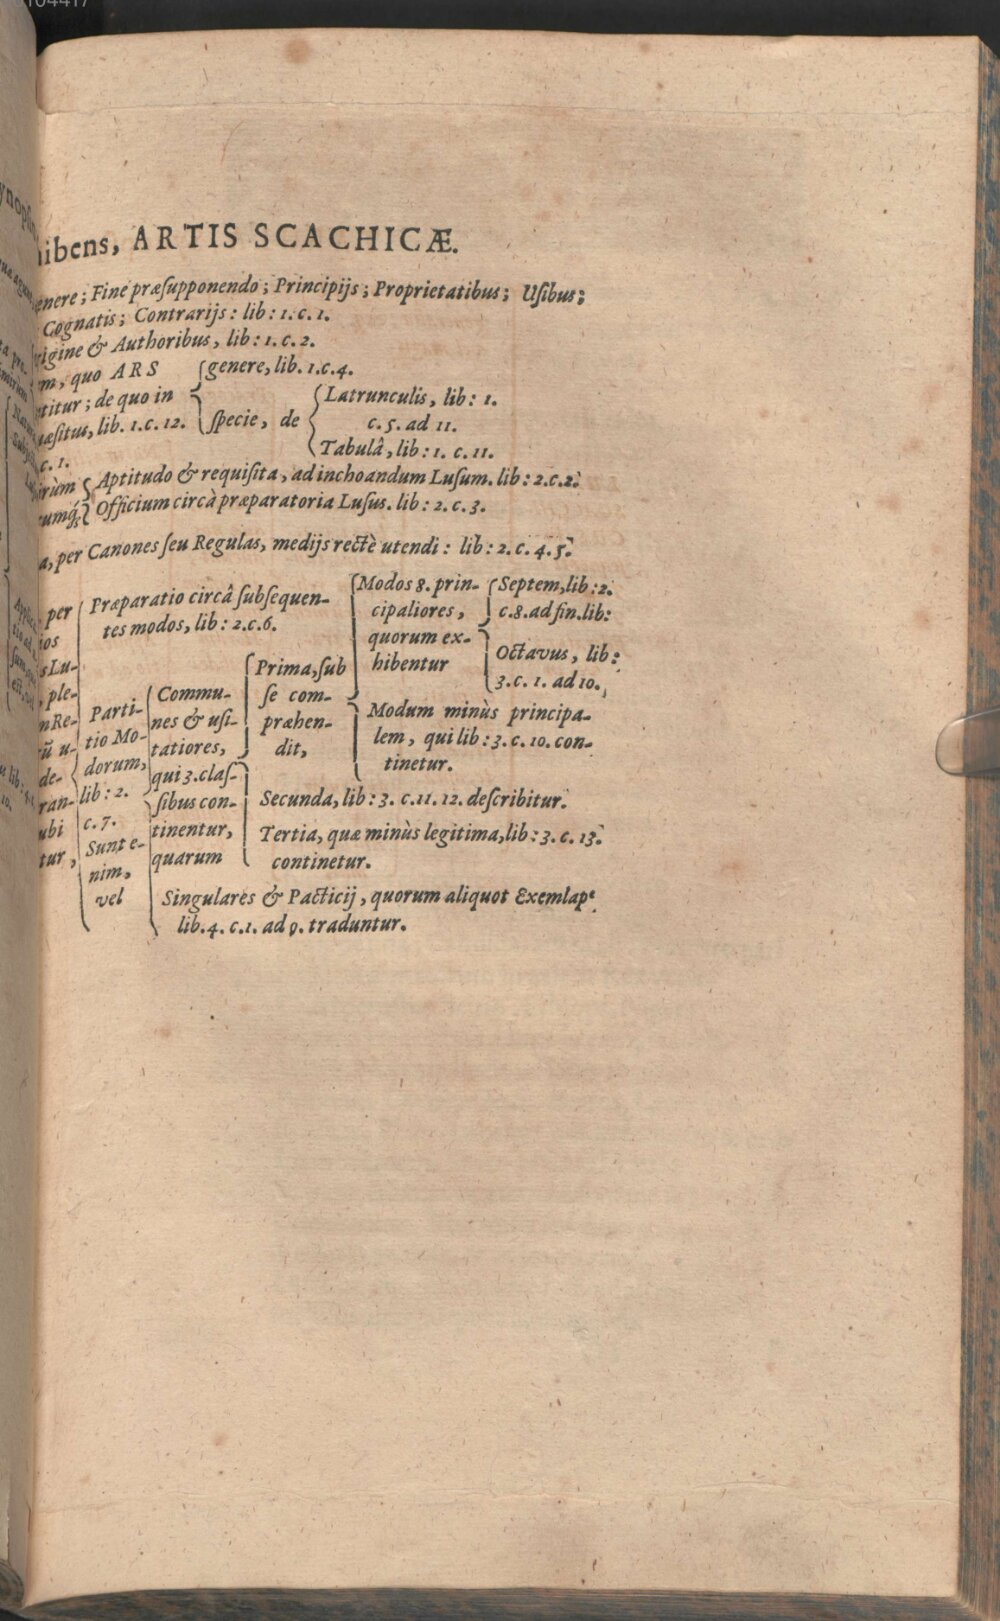 hibens, ARTIS SCACHICÆ.
enere; Fine præſupponendo; Principijs; Proprietatibus; Uſibus;
Cognatis; Contrarijs: lib: 1. c. 1.
rigine & Authoribus, lib: 1. c. 2.
em, quo ARS
titur; de quo in
æſitus, lib. 1. c. 12.
genere, lib. 1. c. 4.
ſpecie, de
Latrunculis, lib: 1.
c. 5. ad 11.
Tabulâ, lib: 1. c. 11.
c. 1.
Aptitudo & requiſita, ad inchoandum Luſum. lib: 2. c. 2.
Officium circà præparatoria Luſus. lib: 2. c. 3.
a, per Canones ſeu Regulas, medijs rectè utendi: lib: 2. c. 4. 5.
per
ios
s Lu-
ple-
n Re-
rū u-
de-
ran-
ubi
tur,
Præparatio circâ ſubſequen-
tes modos, lib: 2. c. 6.
Parti-
tio Mo-
dorum,
lib: 2.
c. 7.
Sunt e-
nim,
vel
Commu-
nes & uſi-
tatiores,
qui 3. claſ-
ſibus con-
tinentur,
quarum
Prima, ſub
ſe com-
præhen-
dit,
Modos 8. prin-
cipaliores,
quorum ex-
hibentur
Septem, lib: 2.
c. 8. ad fin. lib:
Octavus, lib:
3. c. 1. ad 10.
Modum minùs principa-
lem, qui lib: 3. c. 10. con-
tinetur.
Secunda, lib: 3. c. 11. 12. deſcribitur.
Tertia, quæ minùs legitima, lib: 3. c. 13.
continetur.
Singulares & Pacticij, quorum aliquot Exemlap
lib. 4. c. 1. ad 9. traduntur.